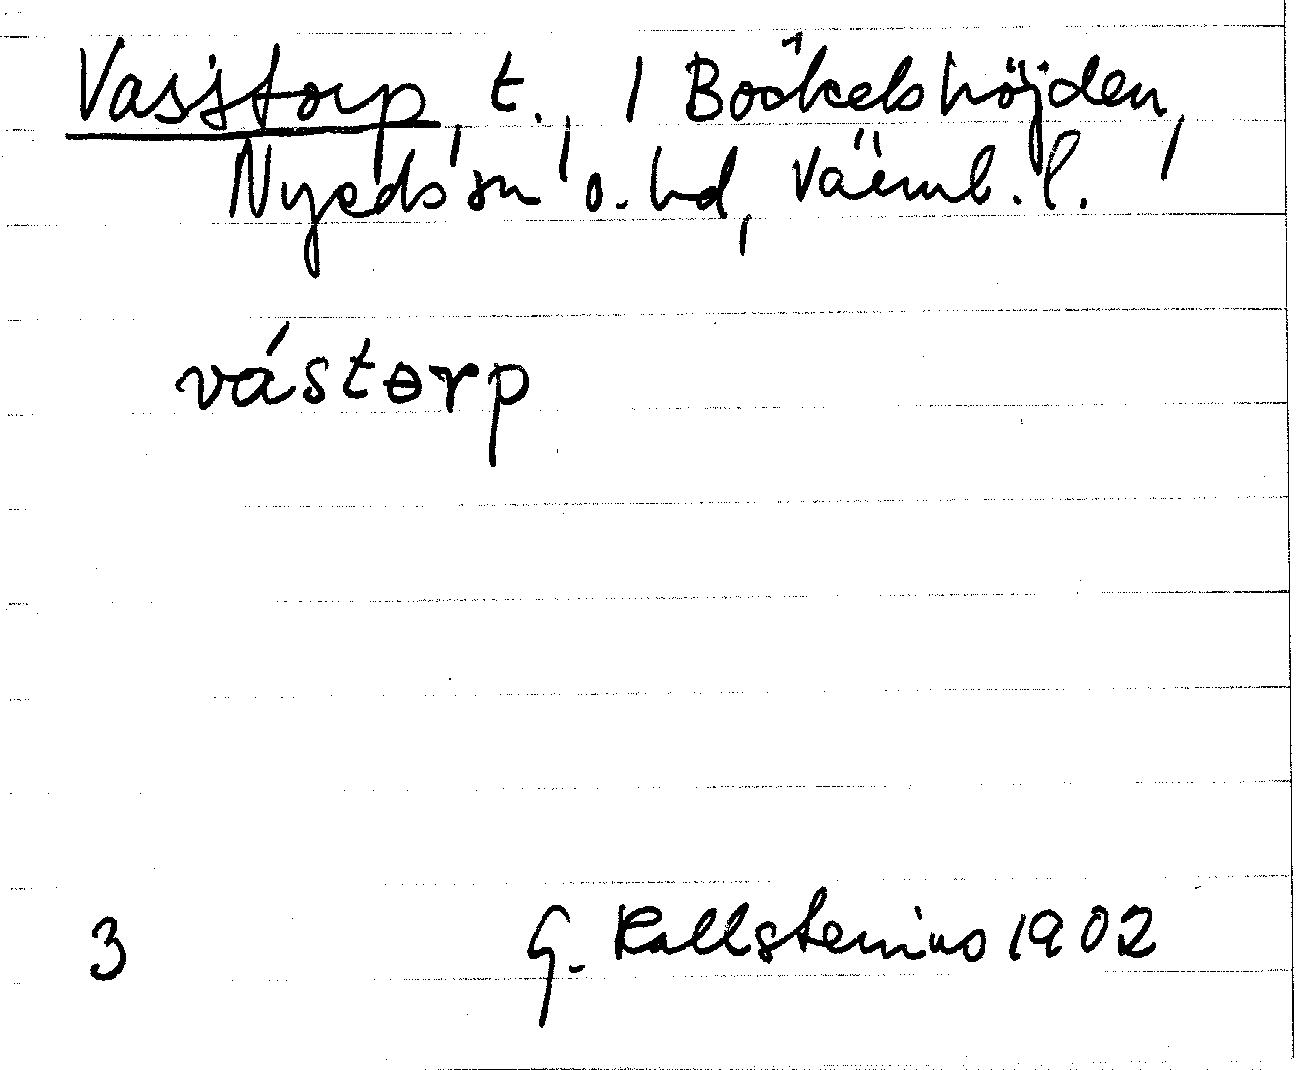 Vasstorp, t., / Böckelshöjden,
Nyeds sn o. hd, Värml. l.
vástɵrp
3 G. Kallstenius 1902